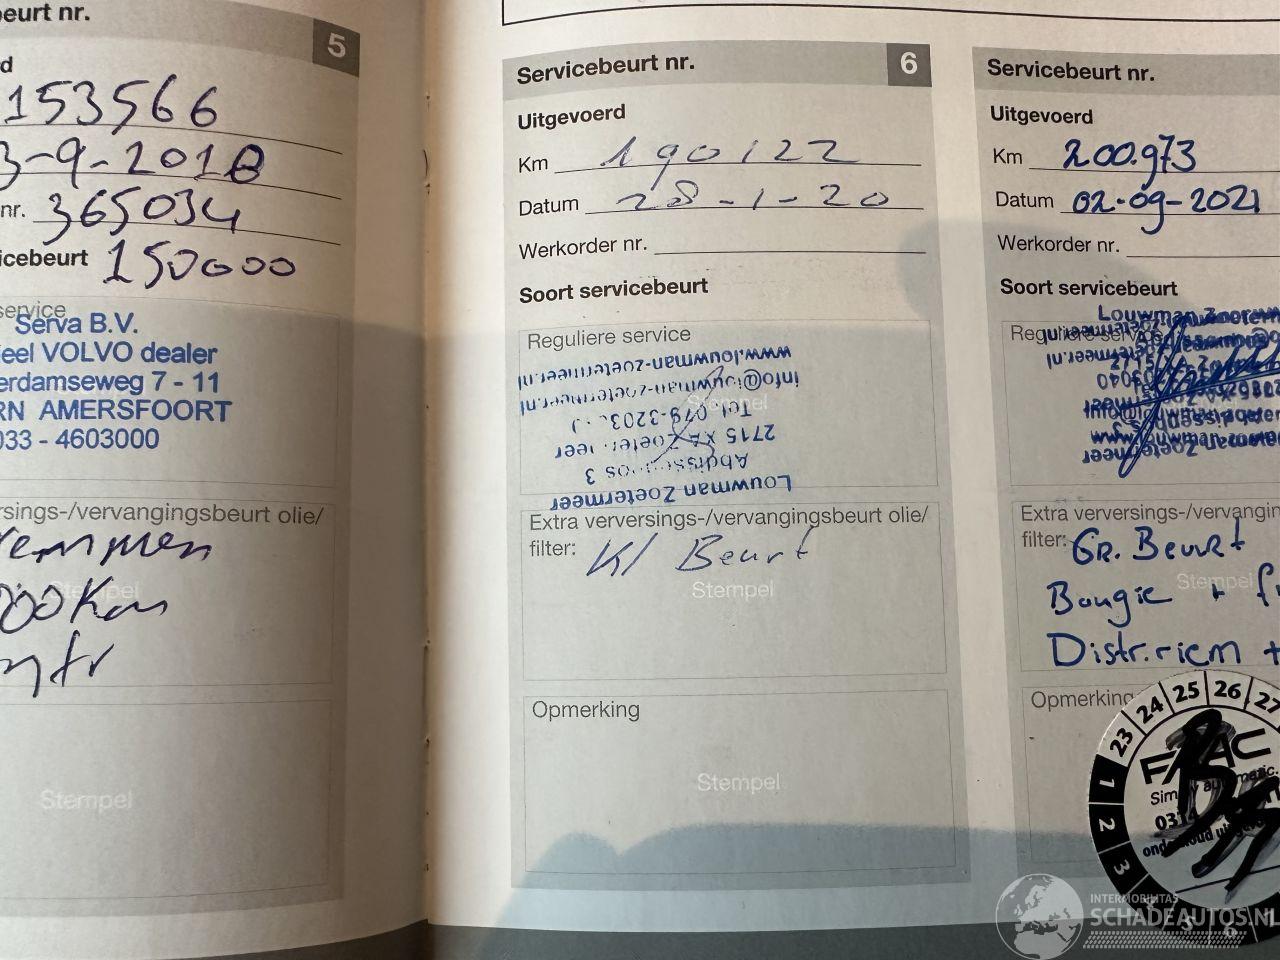 eurt nr. 5
d
153566
3-9-2018
nr. 365034
icebeurt 150000
service
Serva B.V.
eel VOLVO dealer
erdamseweg 7 - 11
RN AMERSFOORT
033 - 4603000
rsings-/vervangingsbeurt olie/
000 Km
Stempel
Stempel
Servicebeurt nr. 6
Uitgevoerd
Km 190122
Datum 28-1-20
Werkorder nr.
Soort servicebeurt
Reguliere service
www.louwman-zoetermeer.nl
info@louwman-zoetermeer.nl
Tel. 079-3203
2715 XA Zoetermeer
Abdissenbos 3
Louwman Zoetermeer
Extra verversings-/vervangingsbeurt olie/
filter: Kl Beurt
Stempel
Opmerking
Stempel
Servicebeurt nr.
Uitgevoerd
Km 200.973
Datum 02-09-2021
Werkorder nr.
Soort servicebeurt
Reguliere service
Extra verversings-/vervangin
filter: Gr. Beurt
Stempel
Bougie +
Distr.riem +
Opmerking
23 24 25 26 27
1
2
3
INTERMOBILITAS
SCHADEAUTOS.NL